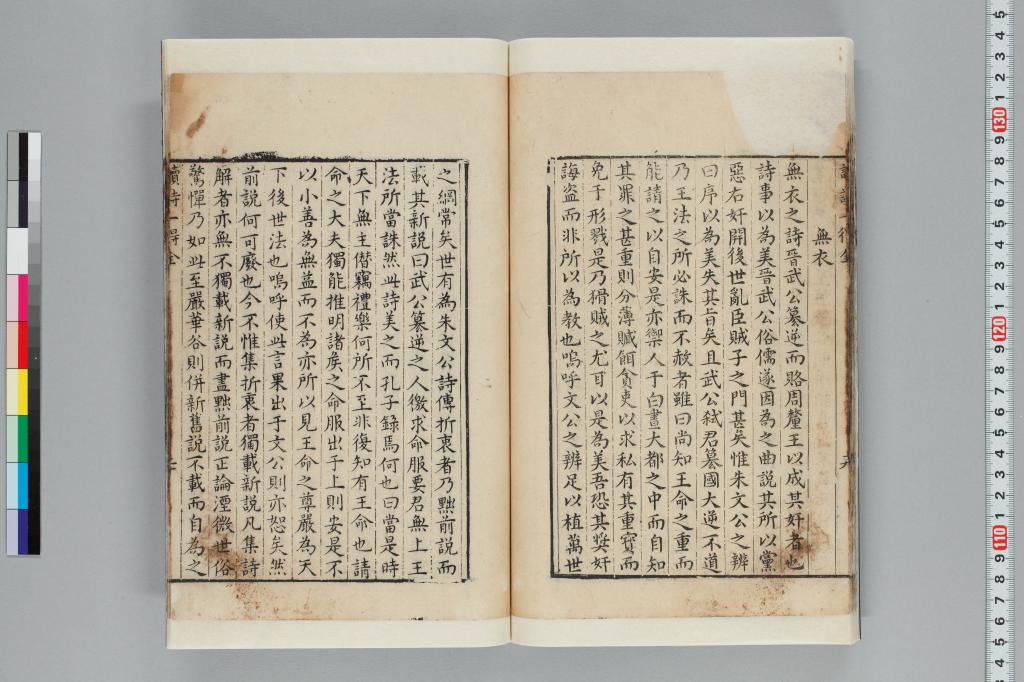 無衣
無衣之詩晉武公簒逆而賂周釐王以成其奸者也
詩事以為美晉武公俗儒遂因為之曲說其所以黨
惡右奸開後世亂臣賊子之門甚矣惟朱文公之辨
曰序以為美失其旨矣且武公弑君簒國大逆不道
乃王法之所必誅而不赦者雖曰尚知王命之重而
能請之以自安是亦禦人于白晝大都之中而自知
其罪之甚重則分薄贓餌貪吏以求私有其重寳而
免于形戮是乃猾賊之尤耳以是為美吾恐其奨奸
誨盗而非所以為教也嗚呼文公之辨足以植萬世
之綱常矣世有為朱文公詩傳折衷者乃黜前說而
載其新說曰武公簒逆之人徼求命服要君無上王
法所當誅然此詩美之而孔子錄焉何也曰當是時
天下無主僣竊禮樂何所不至非復知有王命也請
命之大夫獨能推明諸矦之命服出于上則安是不
以小善為無益而不為亦所以見王命之尊嚴為天
下後世法也嗚呼使此言果出于文公則亦恕矣然
前說何可廢也今不惟集折衷者獨載新說凡集詩
解者亦無不獨載新說而盡黜前說正論湮微世俗
驚憚乃如此至嚴華谷則併新舊說不載而自為之
讀詩一得全